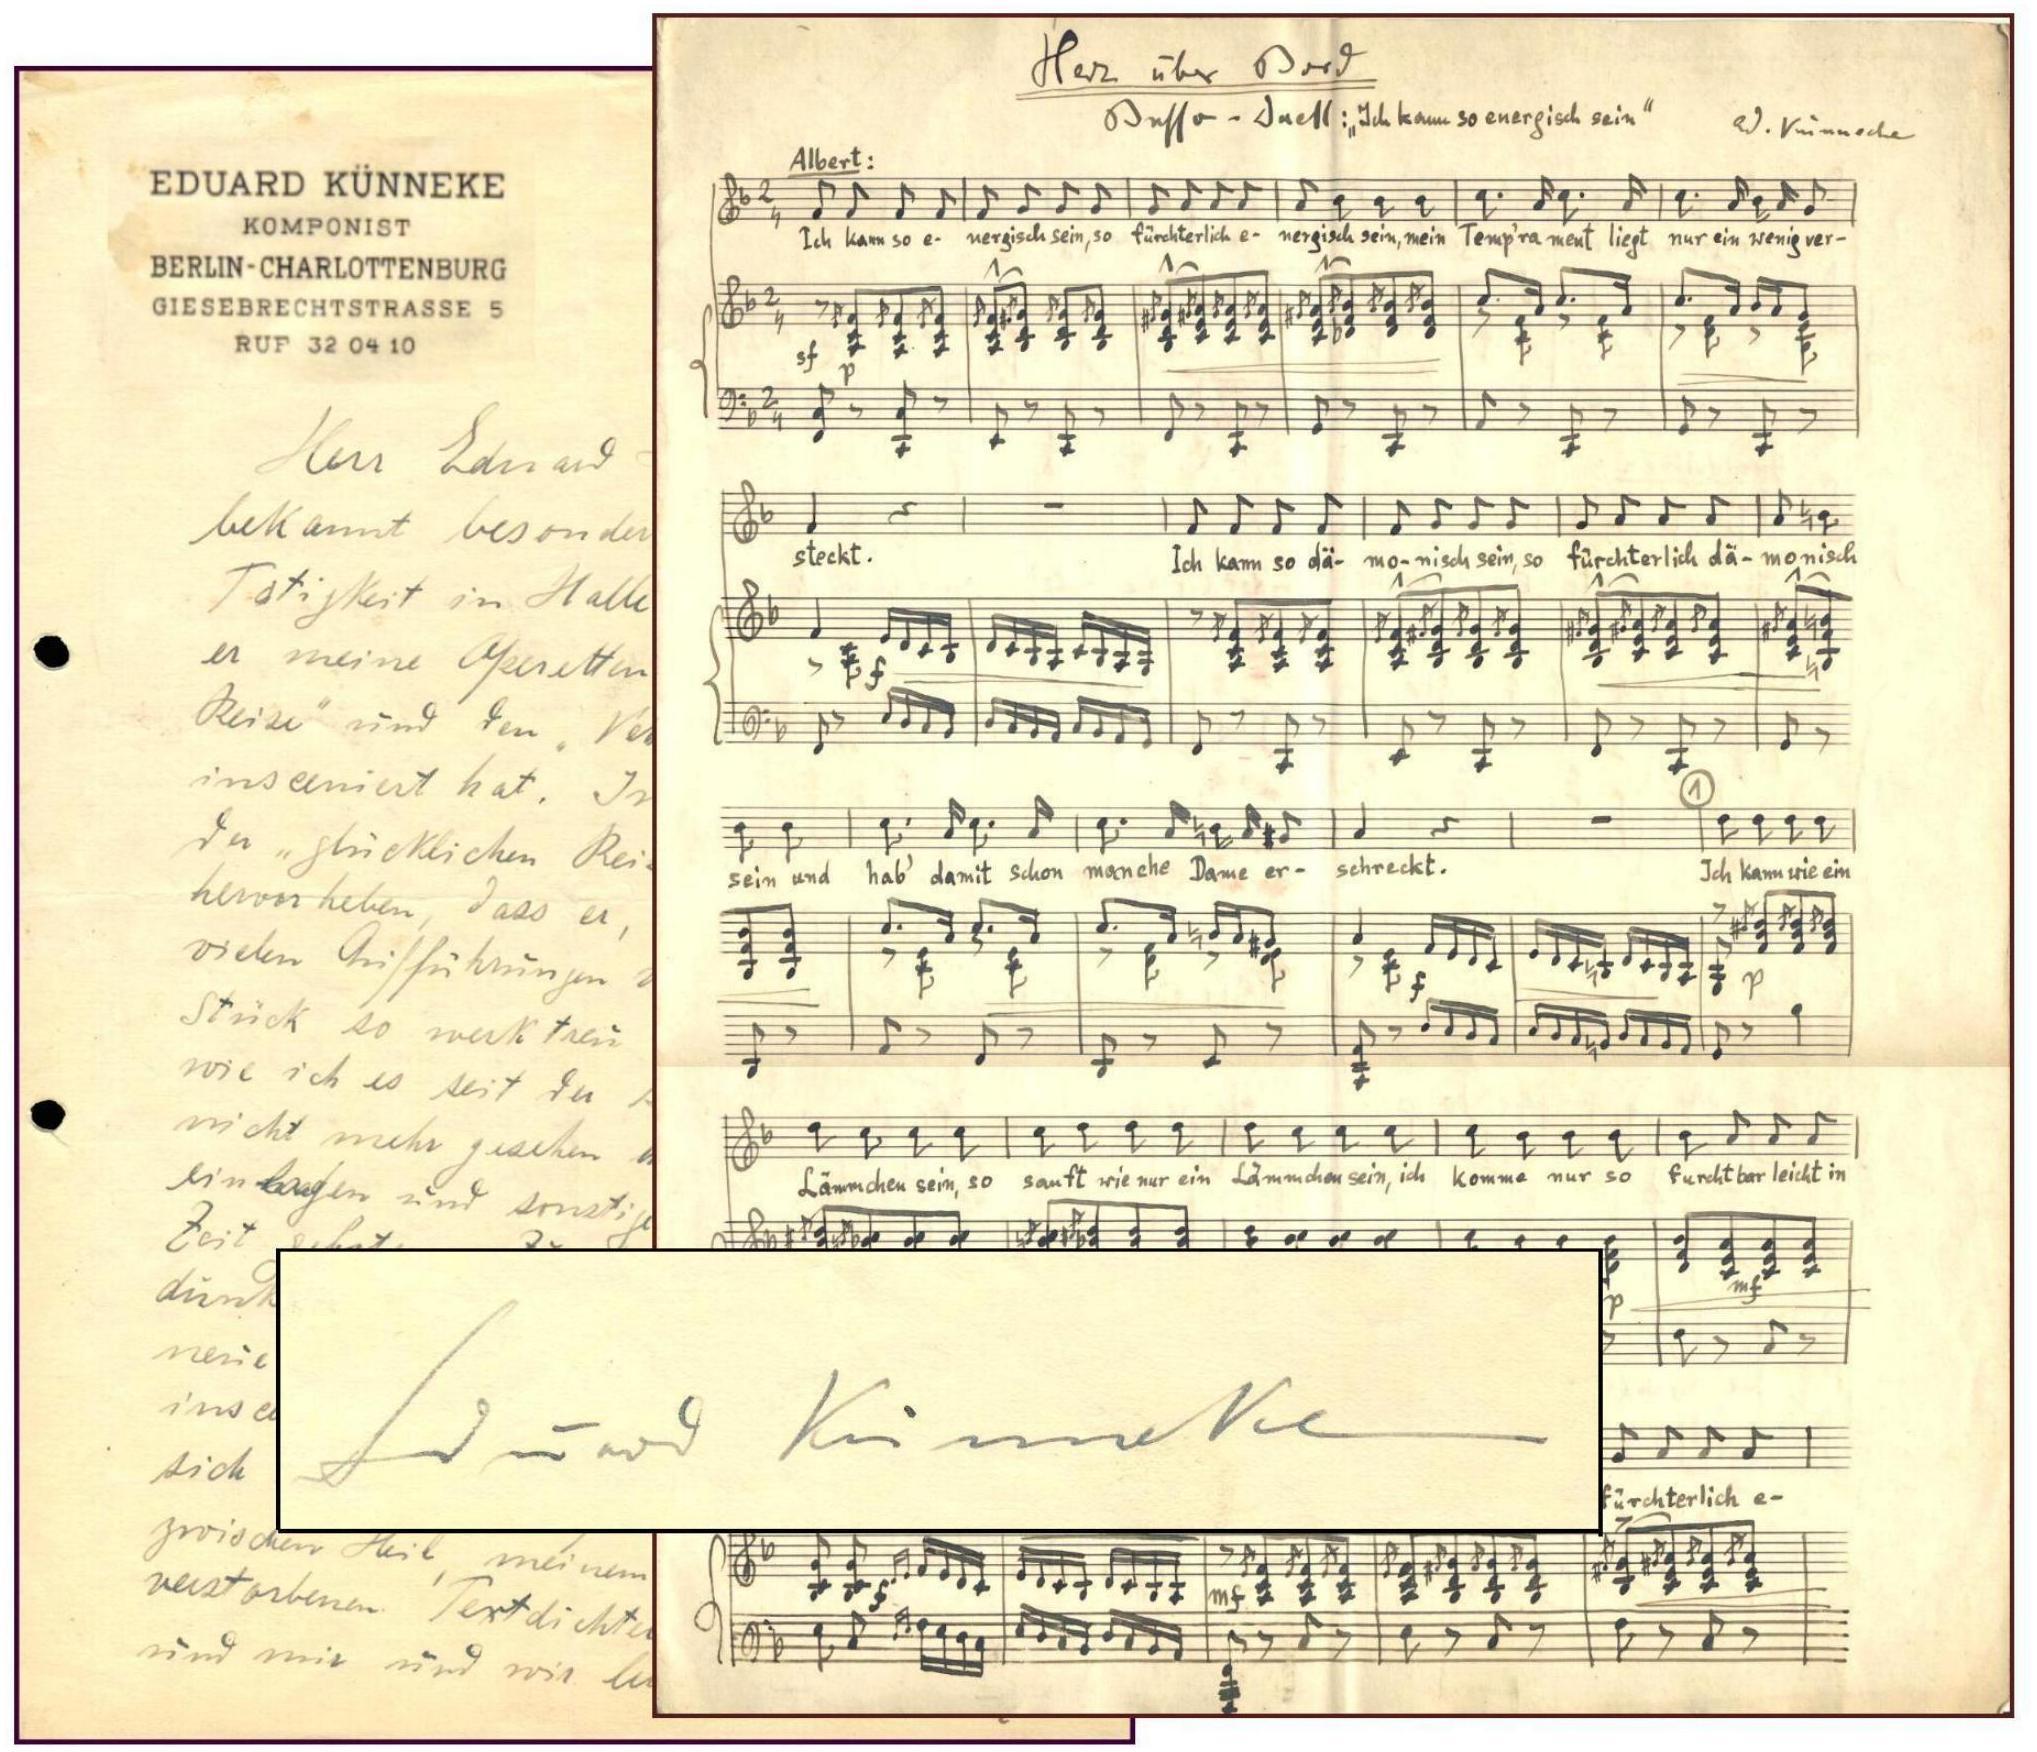 EDUARD KÜNNEKE
KOMPONIST
BERLIN-CHARLOTTENBURG
GIESEBRECHTSTRASSE 5
RUF 32 04 10
Herr Eduard
bekannt besonder
Tätigkeit in Halle
er meine Operetten
Reise" und den „
insceniert hat.
der „glücklichen Rei
hervorheben, dass er,
vielen Aufführungen
Stück so werktreu
wie ich es seit der
nicht mehr gesehen
einlagen und sonstige
Zeit
dunk
neue
insce
sich
zwischen Heil, meinem
verstorbenen Textdichte
und mir und wir
Herz über Bord
Buffo-Duett: „Ich kann so energisch sein"
Ed. Künneke
Albert:
Ich kann so e- nergisch sein, so fürchterlich e- nergisch sein, mein Temp'rament liegt nur ein wenig ver-
sf p
steckt. Ich kann so dä- mo-nisch sein, so fürchterlich dä- monisch
f
1
sein und hab' damit schon manche Dame er- schreckt. Ich kann wie ein
f p
Lämmchen sein, so sanft wie nur ein Lämmchen sein, ich komme nur so furchtbar leicht in
p mf
fürchterlich e-
f mf
Eduard Künneke